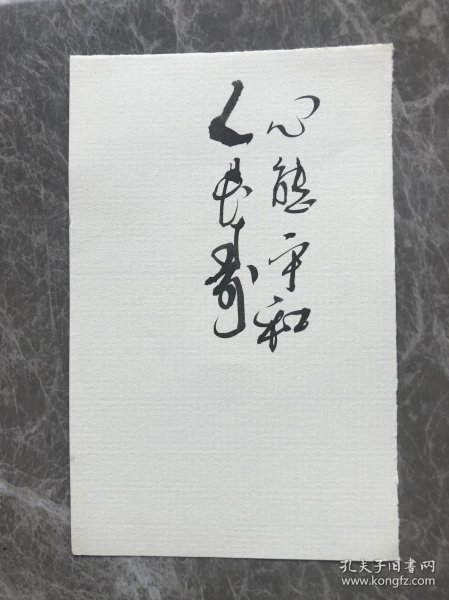 心態平和
人長壽
孔夫子旧书网
www.kongfz.com